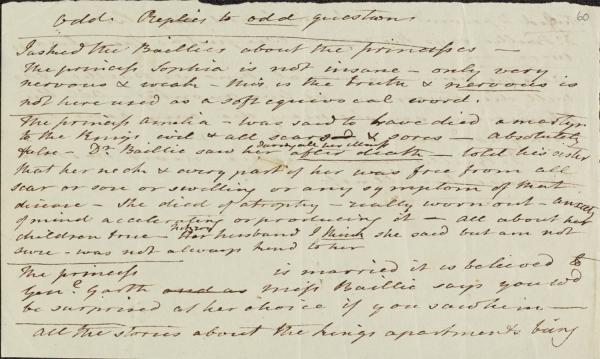 60
Odd Replies to odd questions
I asked the Baillies about the princesses —
The princess Sophia is not insane — only very
nervous & weak — this is the truth & nervous is
not here used as a soft equivocal word.
The princess Amelia — was said to have died a martyr
to the Kings evil & all scars & sores — absolutely
false — Dr. Baillie saw her during all her illness after death — told his sister
that her neck & every part of her was free from all
scar or sore or swelling or any symptom of that
disease — She died of atrophy — really worn out — anxiety
of mind accelerating or producing it — all about her
children true — her husband I think she said but am not
sure — was not always kind to her
The princess is married it is believed to
Genl. Garth and as Miss Baillie says you wd
be surprised at her choice if you saw him —
All the stories about the Kings apartments being